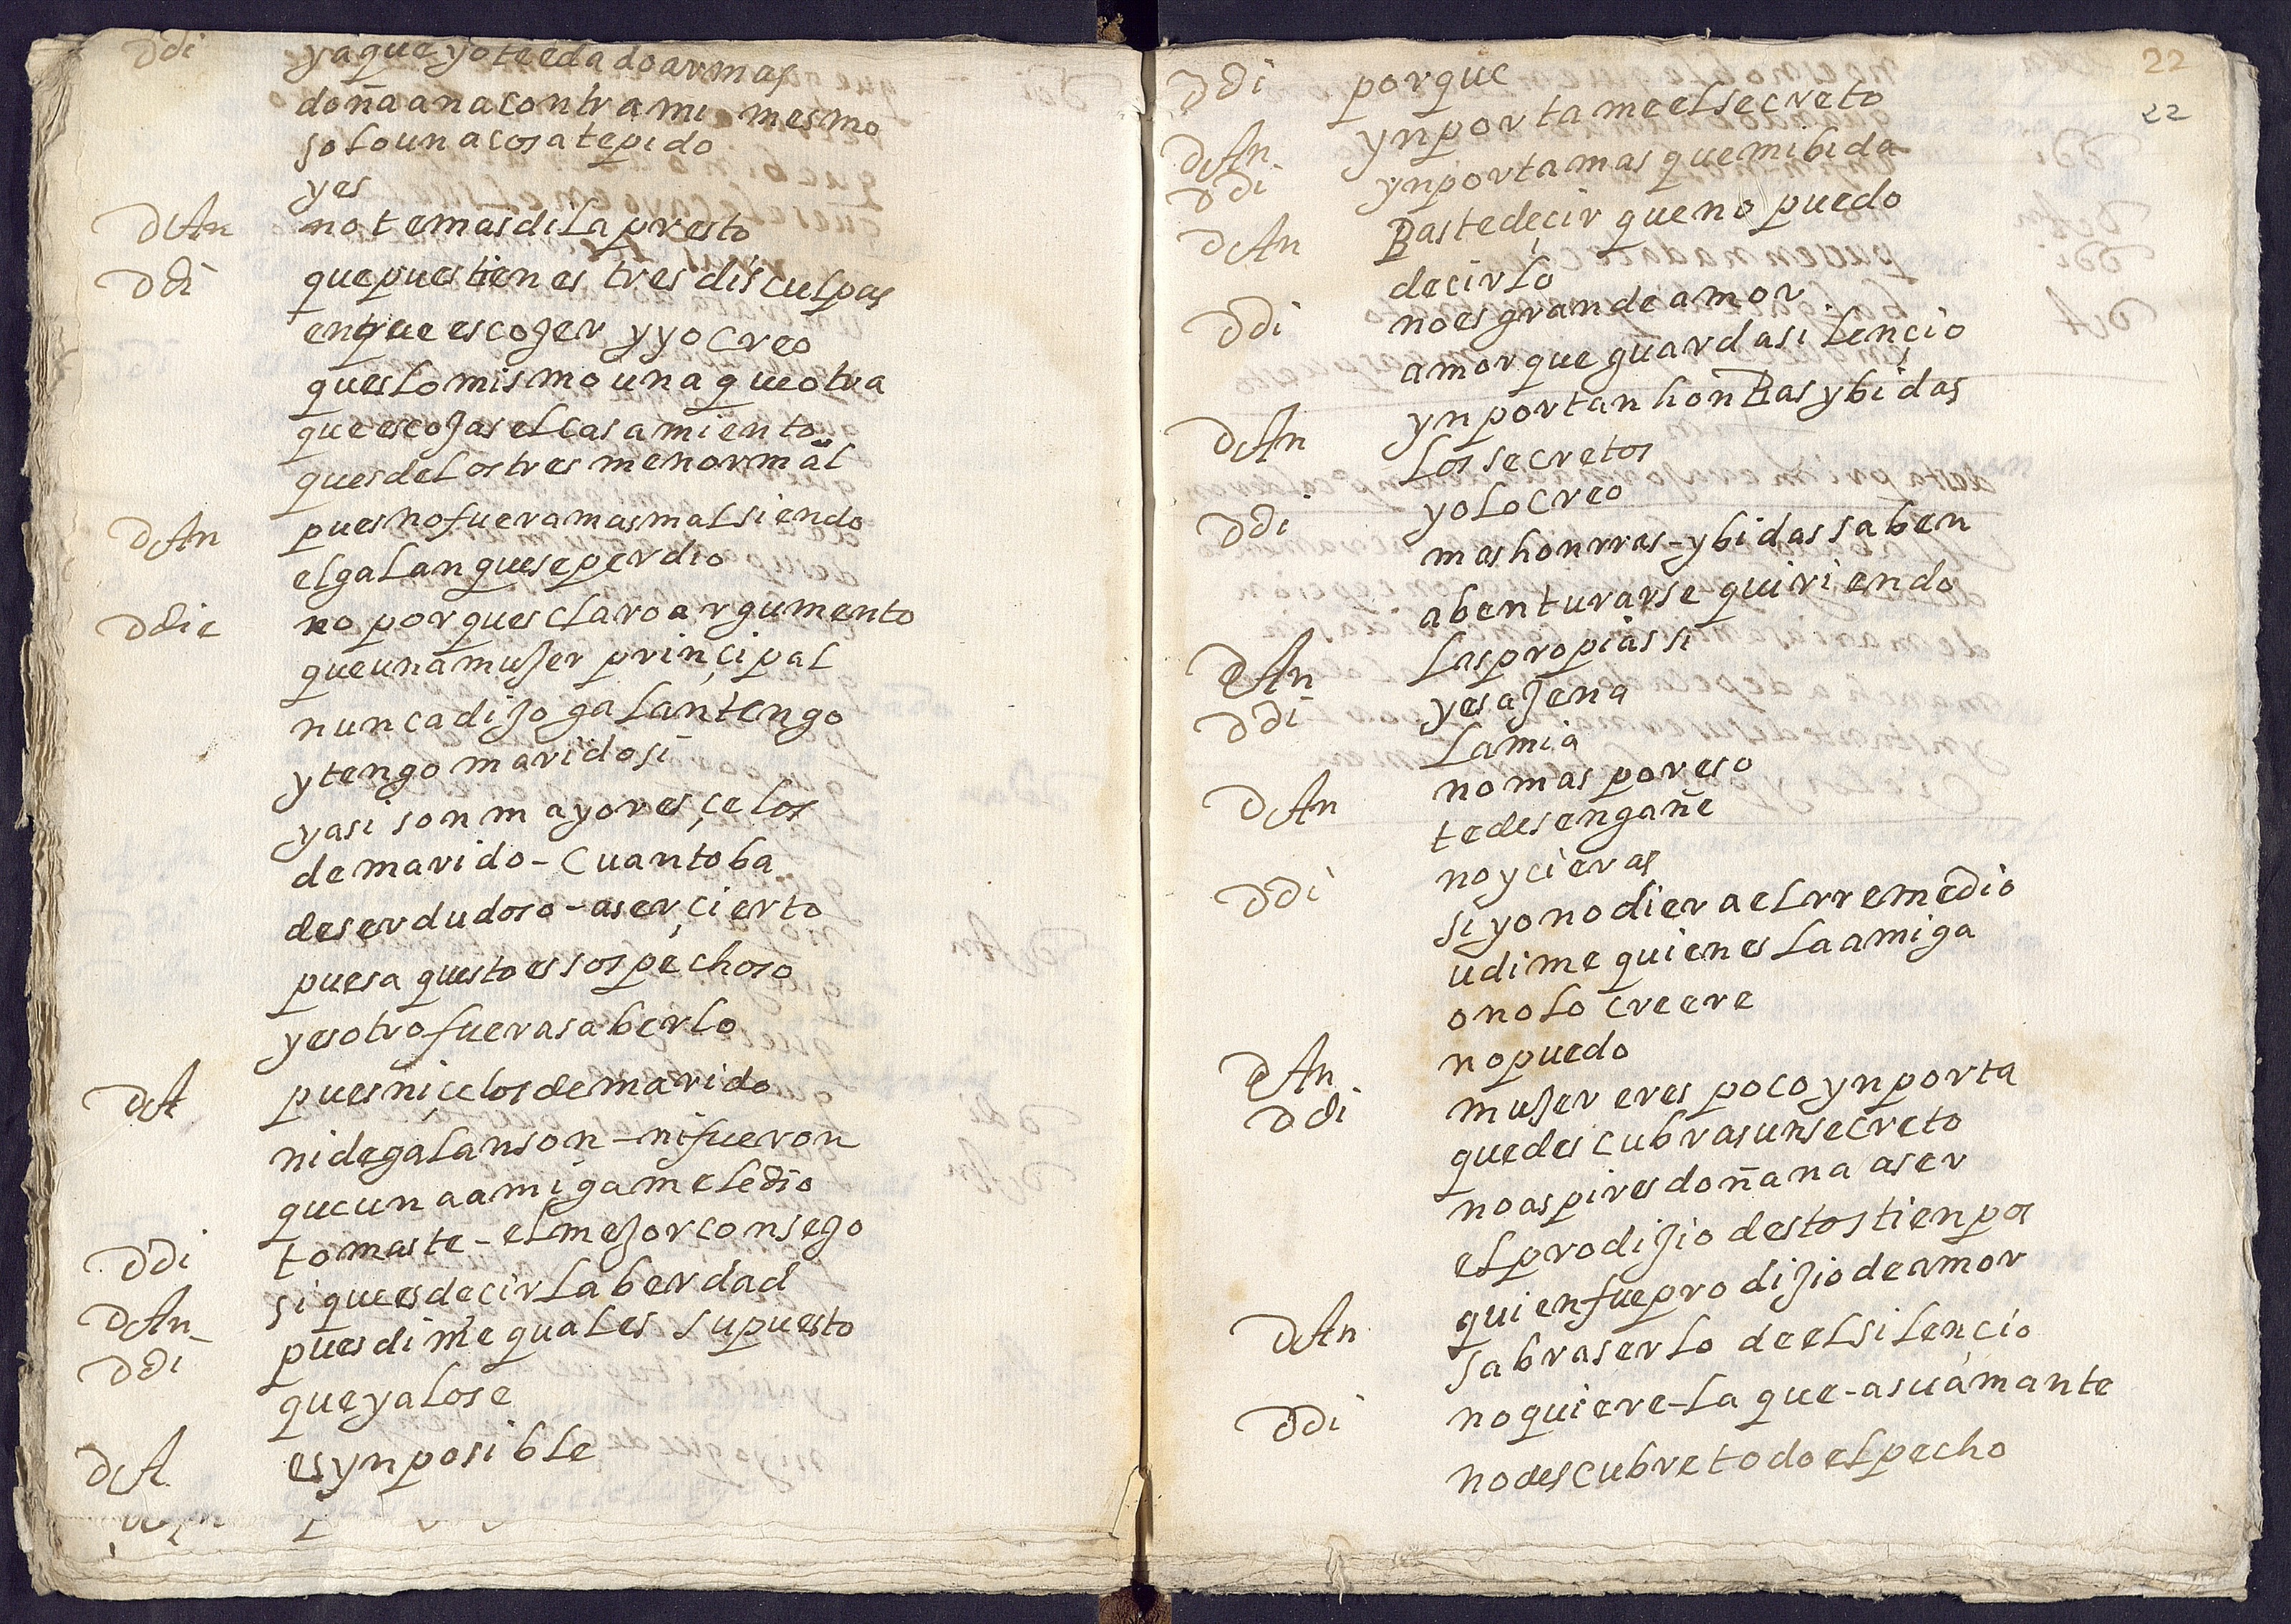 Ddi yaque yo te e dado armas
doña ana contra mi mesmo
solo una cosa te pido
yes
DAn no temas di la presto
Ddi que pues tienes tres disculpas
en que escojer y yo creo
ques lo mismo una que otra
que escojas el casamiento
ques de los tres menor mal
DAn pues no fuera mas mal siendo
el galan que se perdio
Ddie no por ques claro argumento
que una mujer prinçipal
nunca dijo galan tengo
y tengo marido si
y asi son mayores çelos
de marido - cuanto ba
de ser dudoso - a ser çierto
pues aquesto es sospechoso
y esotro fuera saberlo
DA pues ni çelos de marido
ni de galan son - ni fueron
que una amiga me le dio
Ddi tomaste - el mejor consejo
si que es decir la berdad
DAn pues dime qual es supuesto
Ddi que ya lo se
DA es ynposible
22
22
Ddi porque
DAn ynportame el secreto
Ddi ynporta mas que mi bida
DAn Baste deçir que no puedo
decirlo
Ddi no es grande amor
amor que guarda silençio
DAn ynportan honRas y bidas
los secretos
Ddi yo lo creo
mas honrras - y bidas saben
abenturarse quiriendo
DAn las propias si
Ddi y es ajena
la mia
DAn no mas por eso
te desengañe
Ddi no ycieras
si yo no diera el rremedio
u dime quien es la amiga
o no lo creere
DAn no puedo
Ddi mujer eres poco ynporta
que descubras un secreto
no aspires doñana a ser
el prodijio destos tienpos
DAn quien fue prodijio de amor
sabra serlo de el silencio
Ddi no quiere - la que - a su amante
no descubre todo el pecho